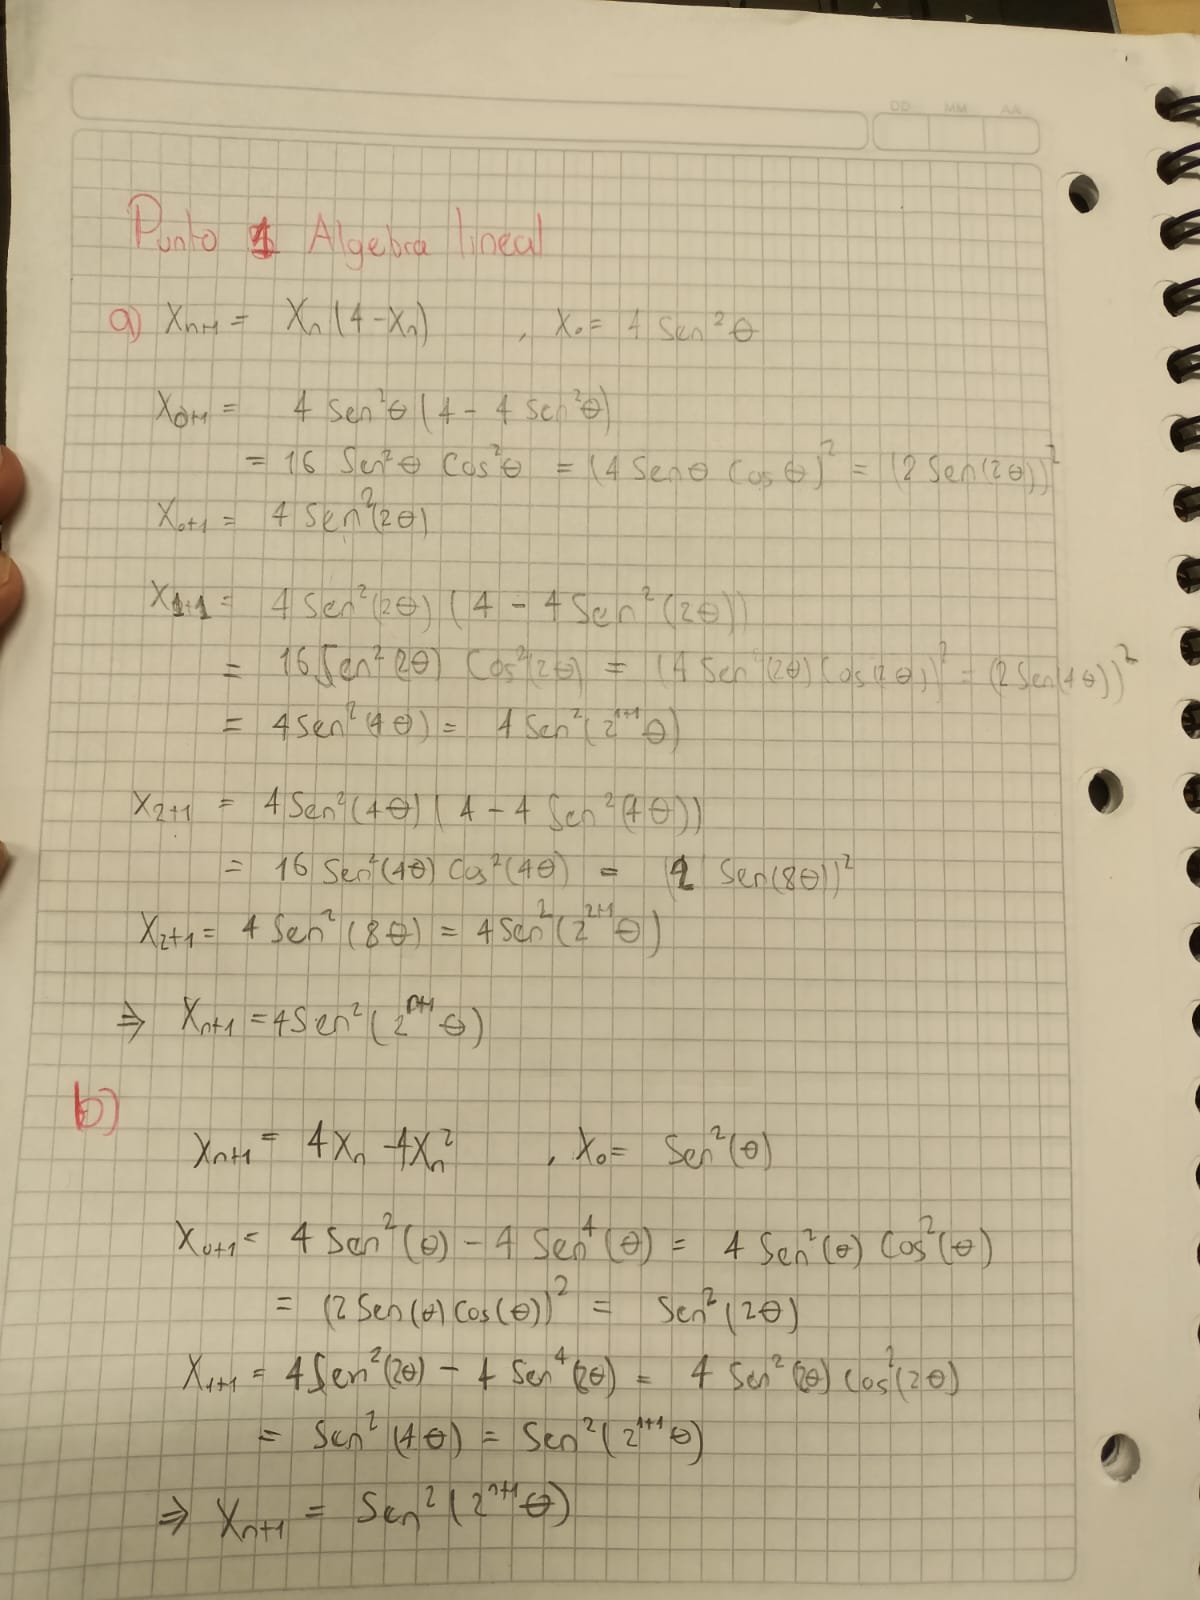 DD MM AA
Punto 1 Algebra lineal
a) Xn+1 = Xn(4-Xn) , X₀= 4 Sen²θ
X0+1 = 4 Sen²θ(4 - 4 Sen²θ)
= 16 Sen²θ Cos²θ = (4 Senθ Cosθ)² = (2 Sen(2θ))²
X0+1 = 4 Sen²(2θ)
X1+1 = 4 Sen²(2θ) (4 - 4 Sen²(2θ))
= 16 Sen²(2θ) Cos²(2θ) = (4 Sen²(2θ) Cos(2θ))² = (2 Sen(4θ))²
= 4 Sen²(4θ) = 4 Sen²(2¹⁺¹θ)
X2+1 = 4 Sen²(4θ) (4 - 4 Sen²(4θ))
= 16 Sen²(4θ) Cos²(4θ) = (2 Sen(8θ))²
X2+1 = 4 Sen²(8θ) = 4 Sen²(2²⁺¹θ)
⇒ Xn+1 = 4 Sen²(2ⁿ⁺¹θ)
b)
Xn+1 = 4Xn - 4Xn² , X₀= Sen²(θ)
X0+1 = 4 Sen²(θ) - 4 Sen⁴(θ) = 4 Sen²(θ) Cos²(θ)
= (2 Sen(θ) Cos(θ))² = Sen²(2θ)
X1+1 = 4 Sen²(2θ) - 4 Sen⁴(2θ) = 4 Sen²(2θ) Cos²(2θ)
= Sen²(4θ) = Sen²(2¹⁺¹θ)
⇒ Xn+1 = Sen²(2ⁿ⁺¹θ)